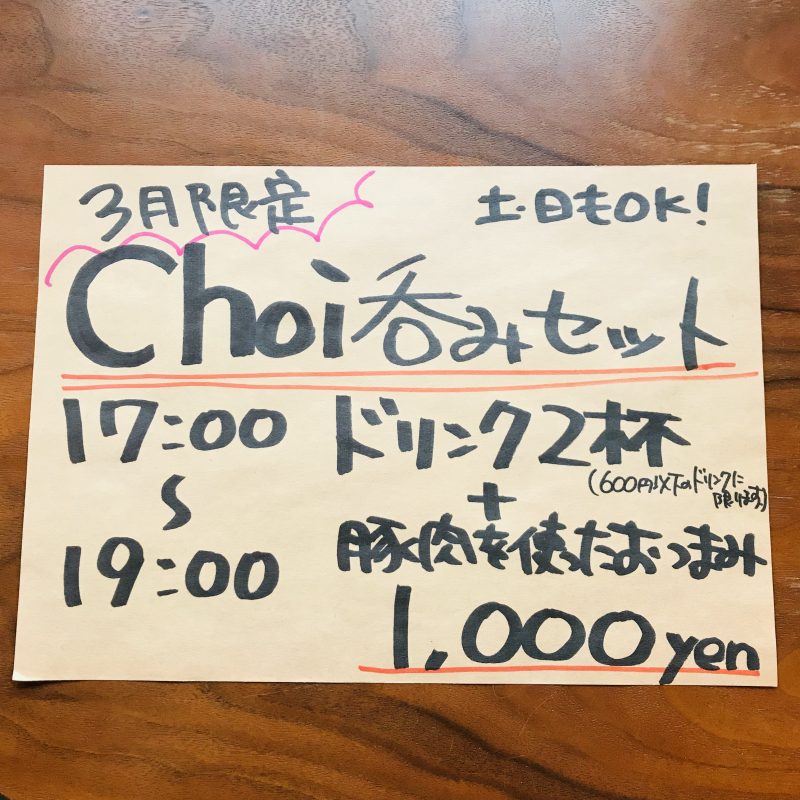 3月限定
土・日もOK!
Choi呑みセット
17:00
〜
19:00
ドリンク2杯
(600円以下のドリンクに
限ります)
+
豚肉を使ったおつまみ
1,000yen